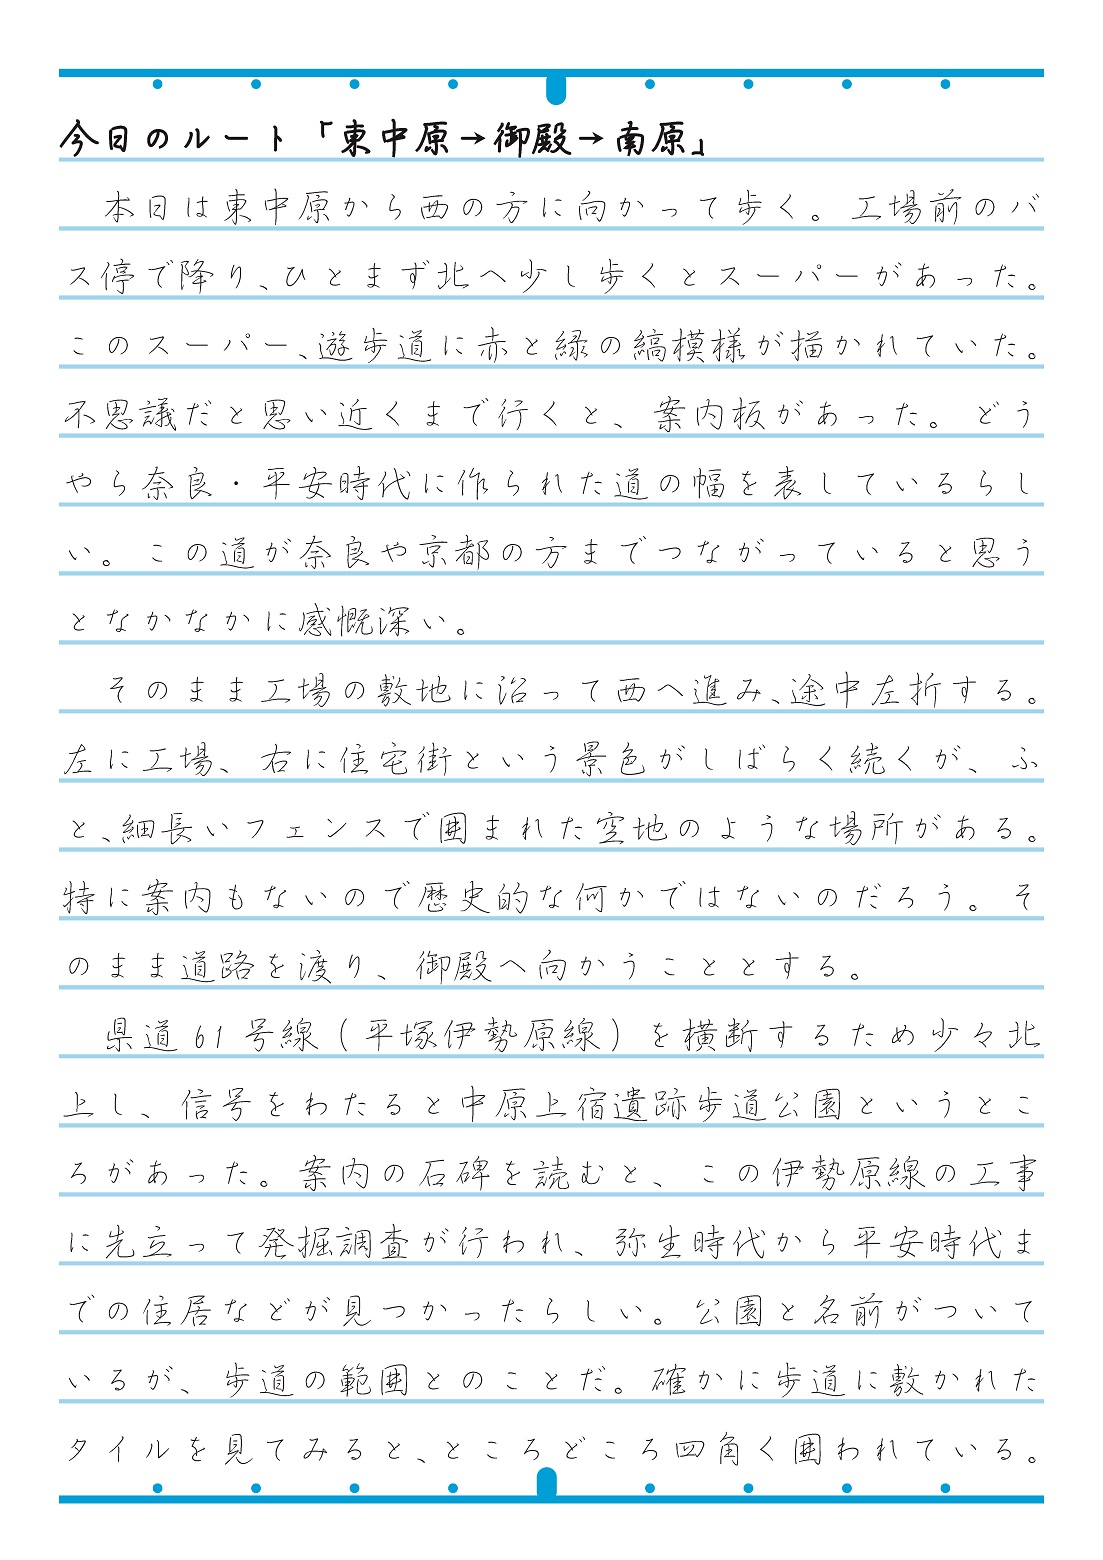 今日のルート「東中原→御殿→南原」
本日は東中原から西の方に向かって歩く。工場前のバ
ス停で降り、ひとまず北へ少し歩くとスーパーがあった。
このスーパー、遊歩道に赤と緑の縞模様が描かれていた。
不思議だと思い近くまで行くと、案内板があった。どう
やら奈良・平安時代に作られた道の幅を表しているらし
い。この道が奈良や京都の方までつながっていると思う
となかなかに感慨深い。
そのまま工場の敷地に沿って西へ進み、途中左折する。
左に工場、右に住宅街という景色がしばらく続くが、ふ
と、細長いフェンスで囲まれた空地のような場所がある。
特に案内もないので歴史的な何かではないのだろう。そ
のまま道路を渡り、御殿へ向かうこととする。
県道61号線（平塚伊勢原線）を横断するため少々北
上し、信号をわたると中原上宿遺跡歩道公園というとこ
ろがあった。案内の石碑を読むと、この伊勢原線の工事
に先立って発掘調査が行われ、弥生時代から平安時代ま
での住居などが見つかったらしい。公園と名前がついて
いるが、歩道の範囲とのことだ。確かに歩道に敷かれた
タイルを見てみると、ところどころ四角く囲われている。